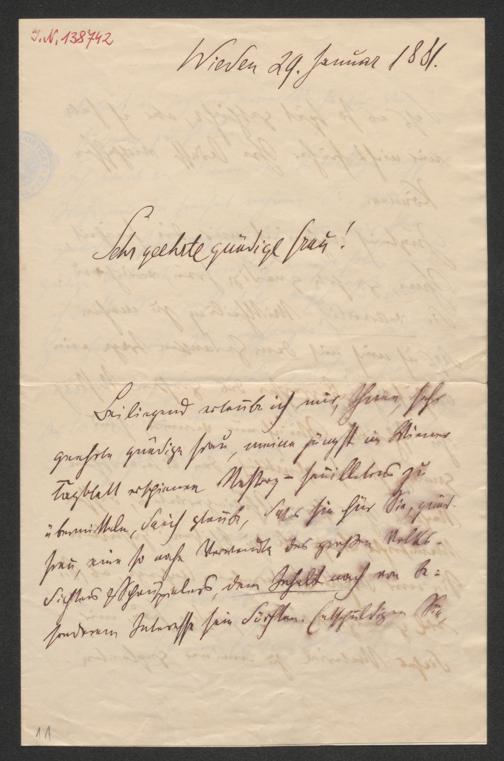 I.N. 138742
Wieden 29. Januar 1881.
Sehr geehrte gnädige Frau!
Beiliegend erlaube ich mir, Ihnen sehr
geehrte gnädige Frau, meine jüngst im Wiener
Tagblatt erschienenen Nestroy-Feuilletons zu
übermitteln, da ich glaube, dass sie für Sie, gnäd.
Frau, eine so nahe Verwandte des großen Volks-
dichters & Schauspielers, dem Inhalt nach von be-
sonderem Interesse sein dürften. Entschuldigen Sie
11